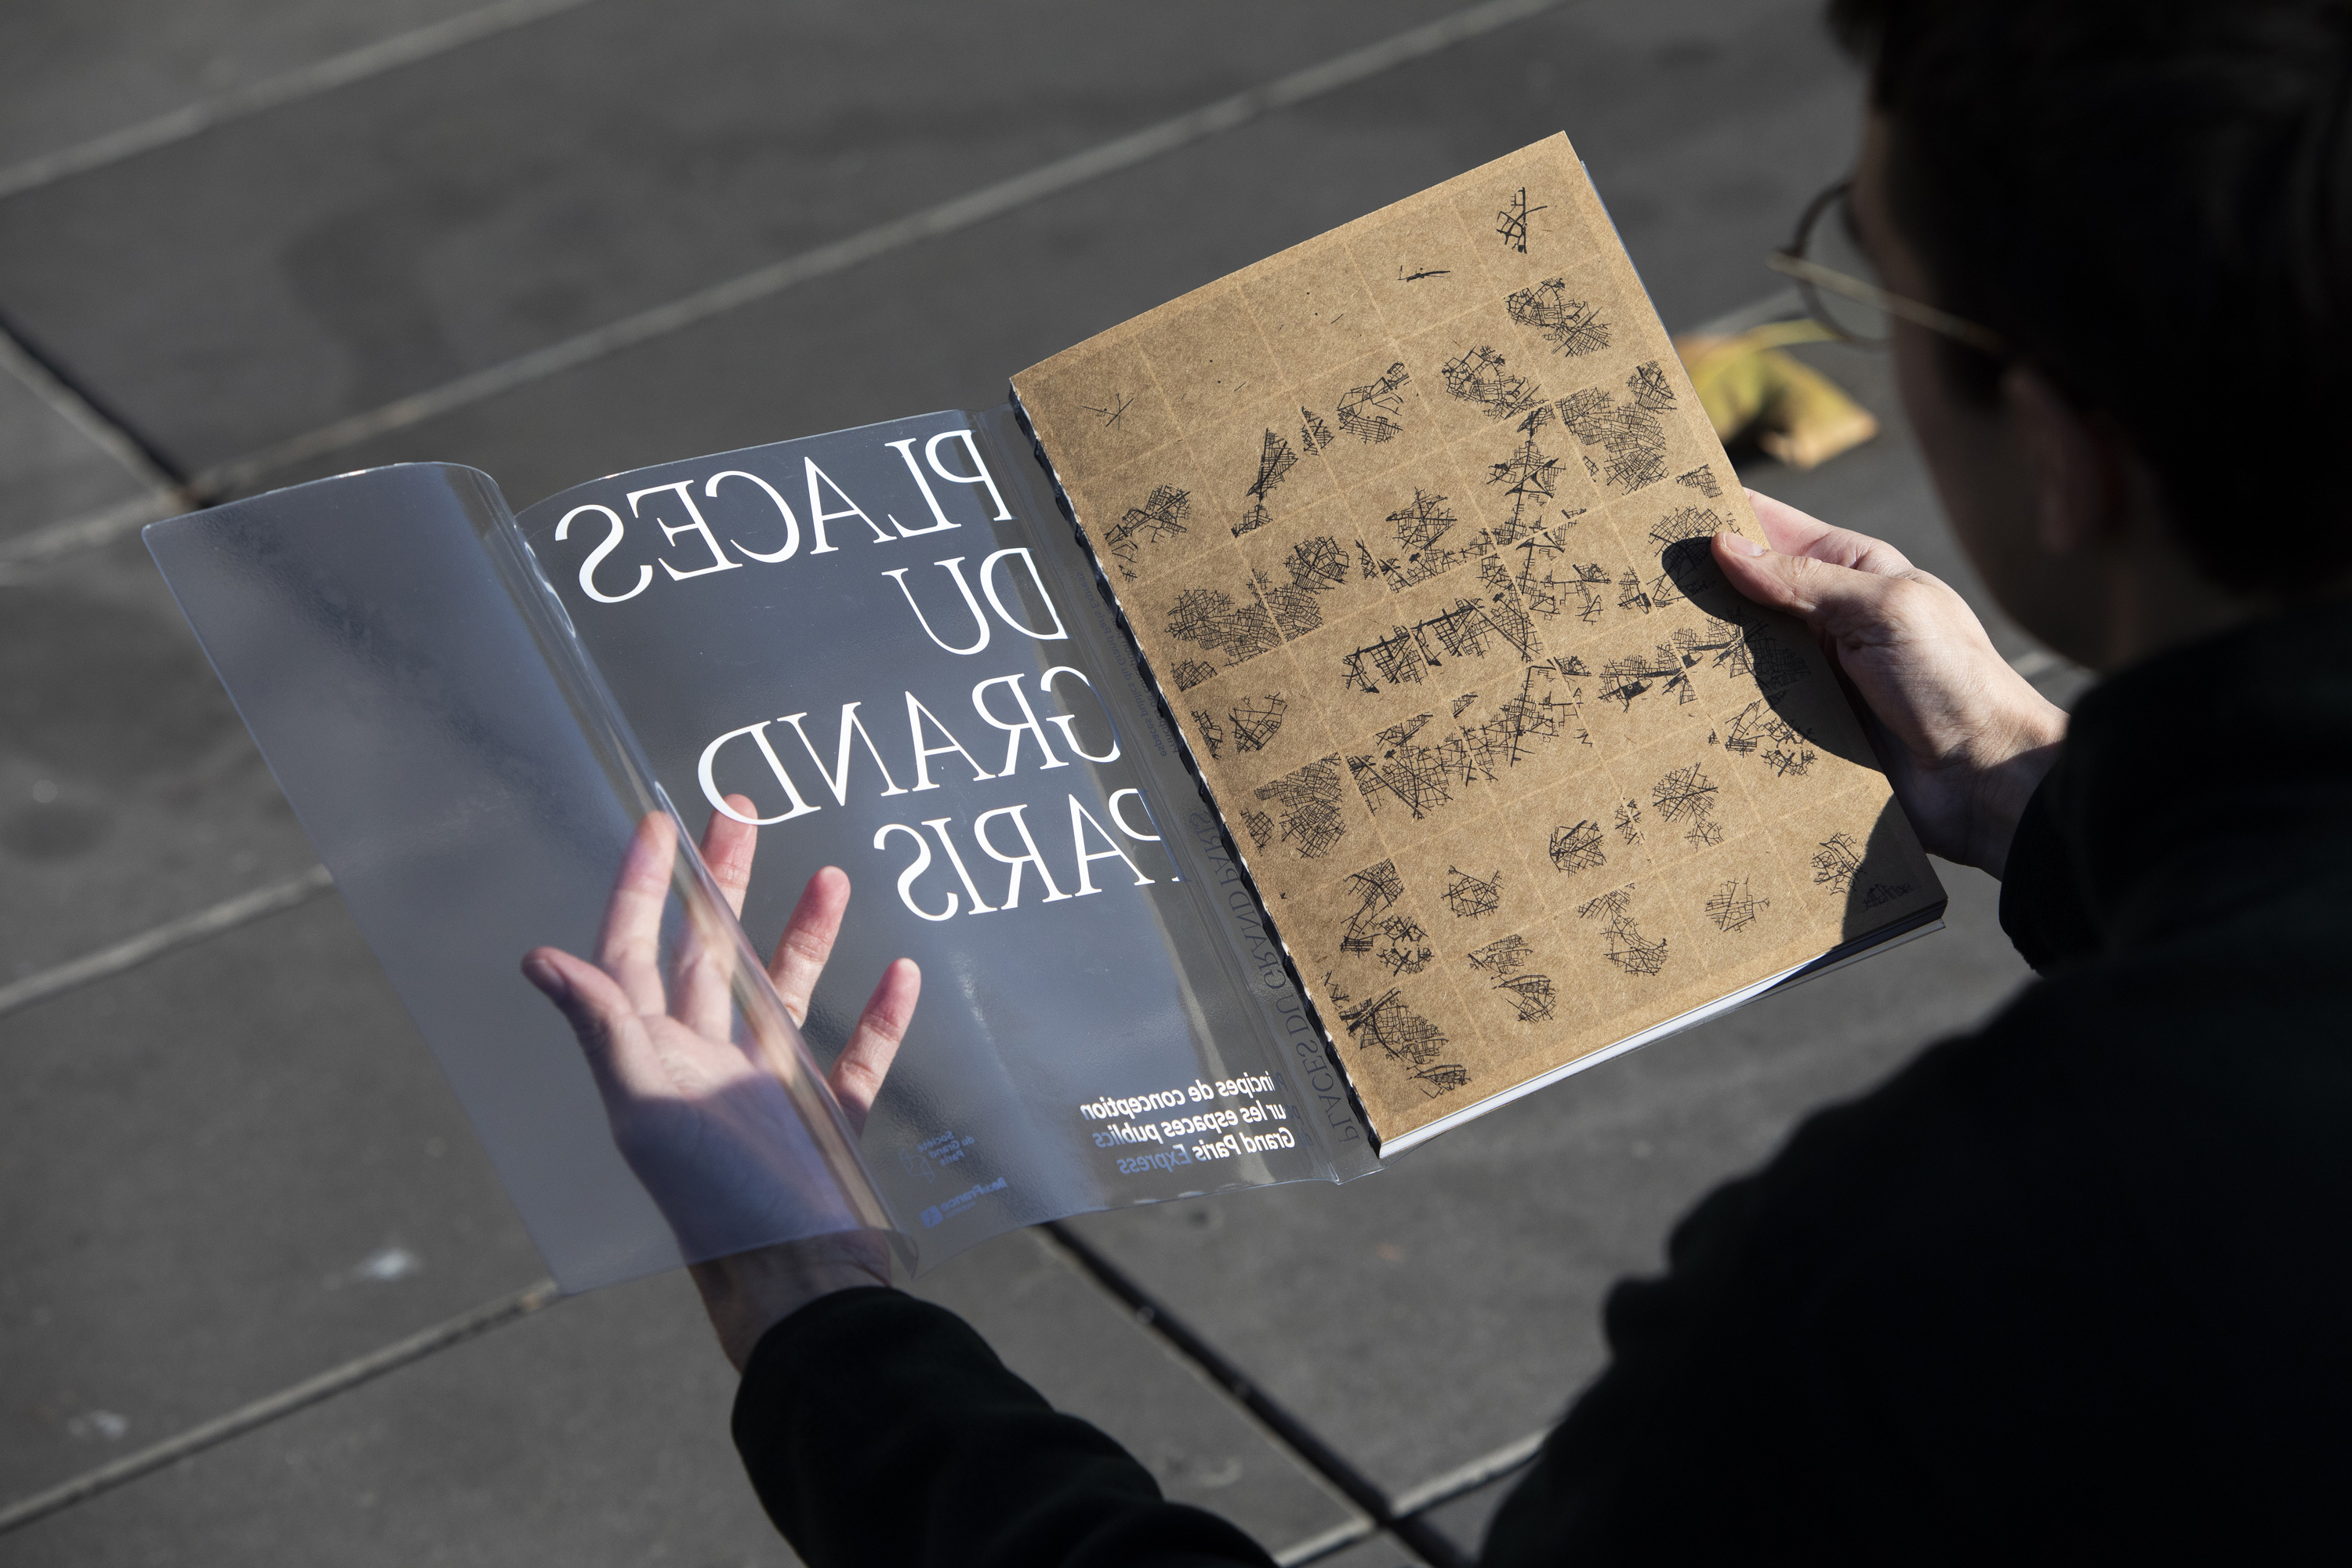 PLACES
DU
GRAND
PARIS
incipes de conception
ur les espaces publics
Grand Paris Express
Société
du Grand
Paris
îledeFrance
PLACES DU GRAND PARIS